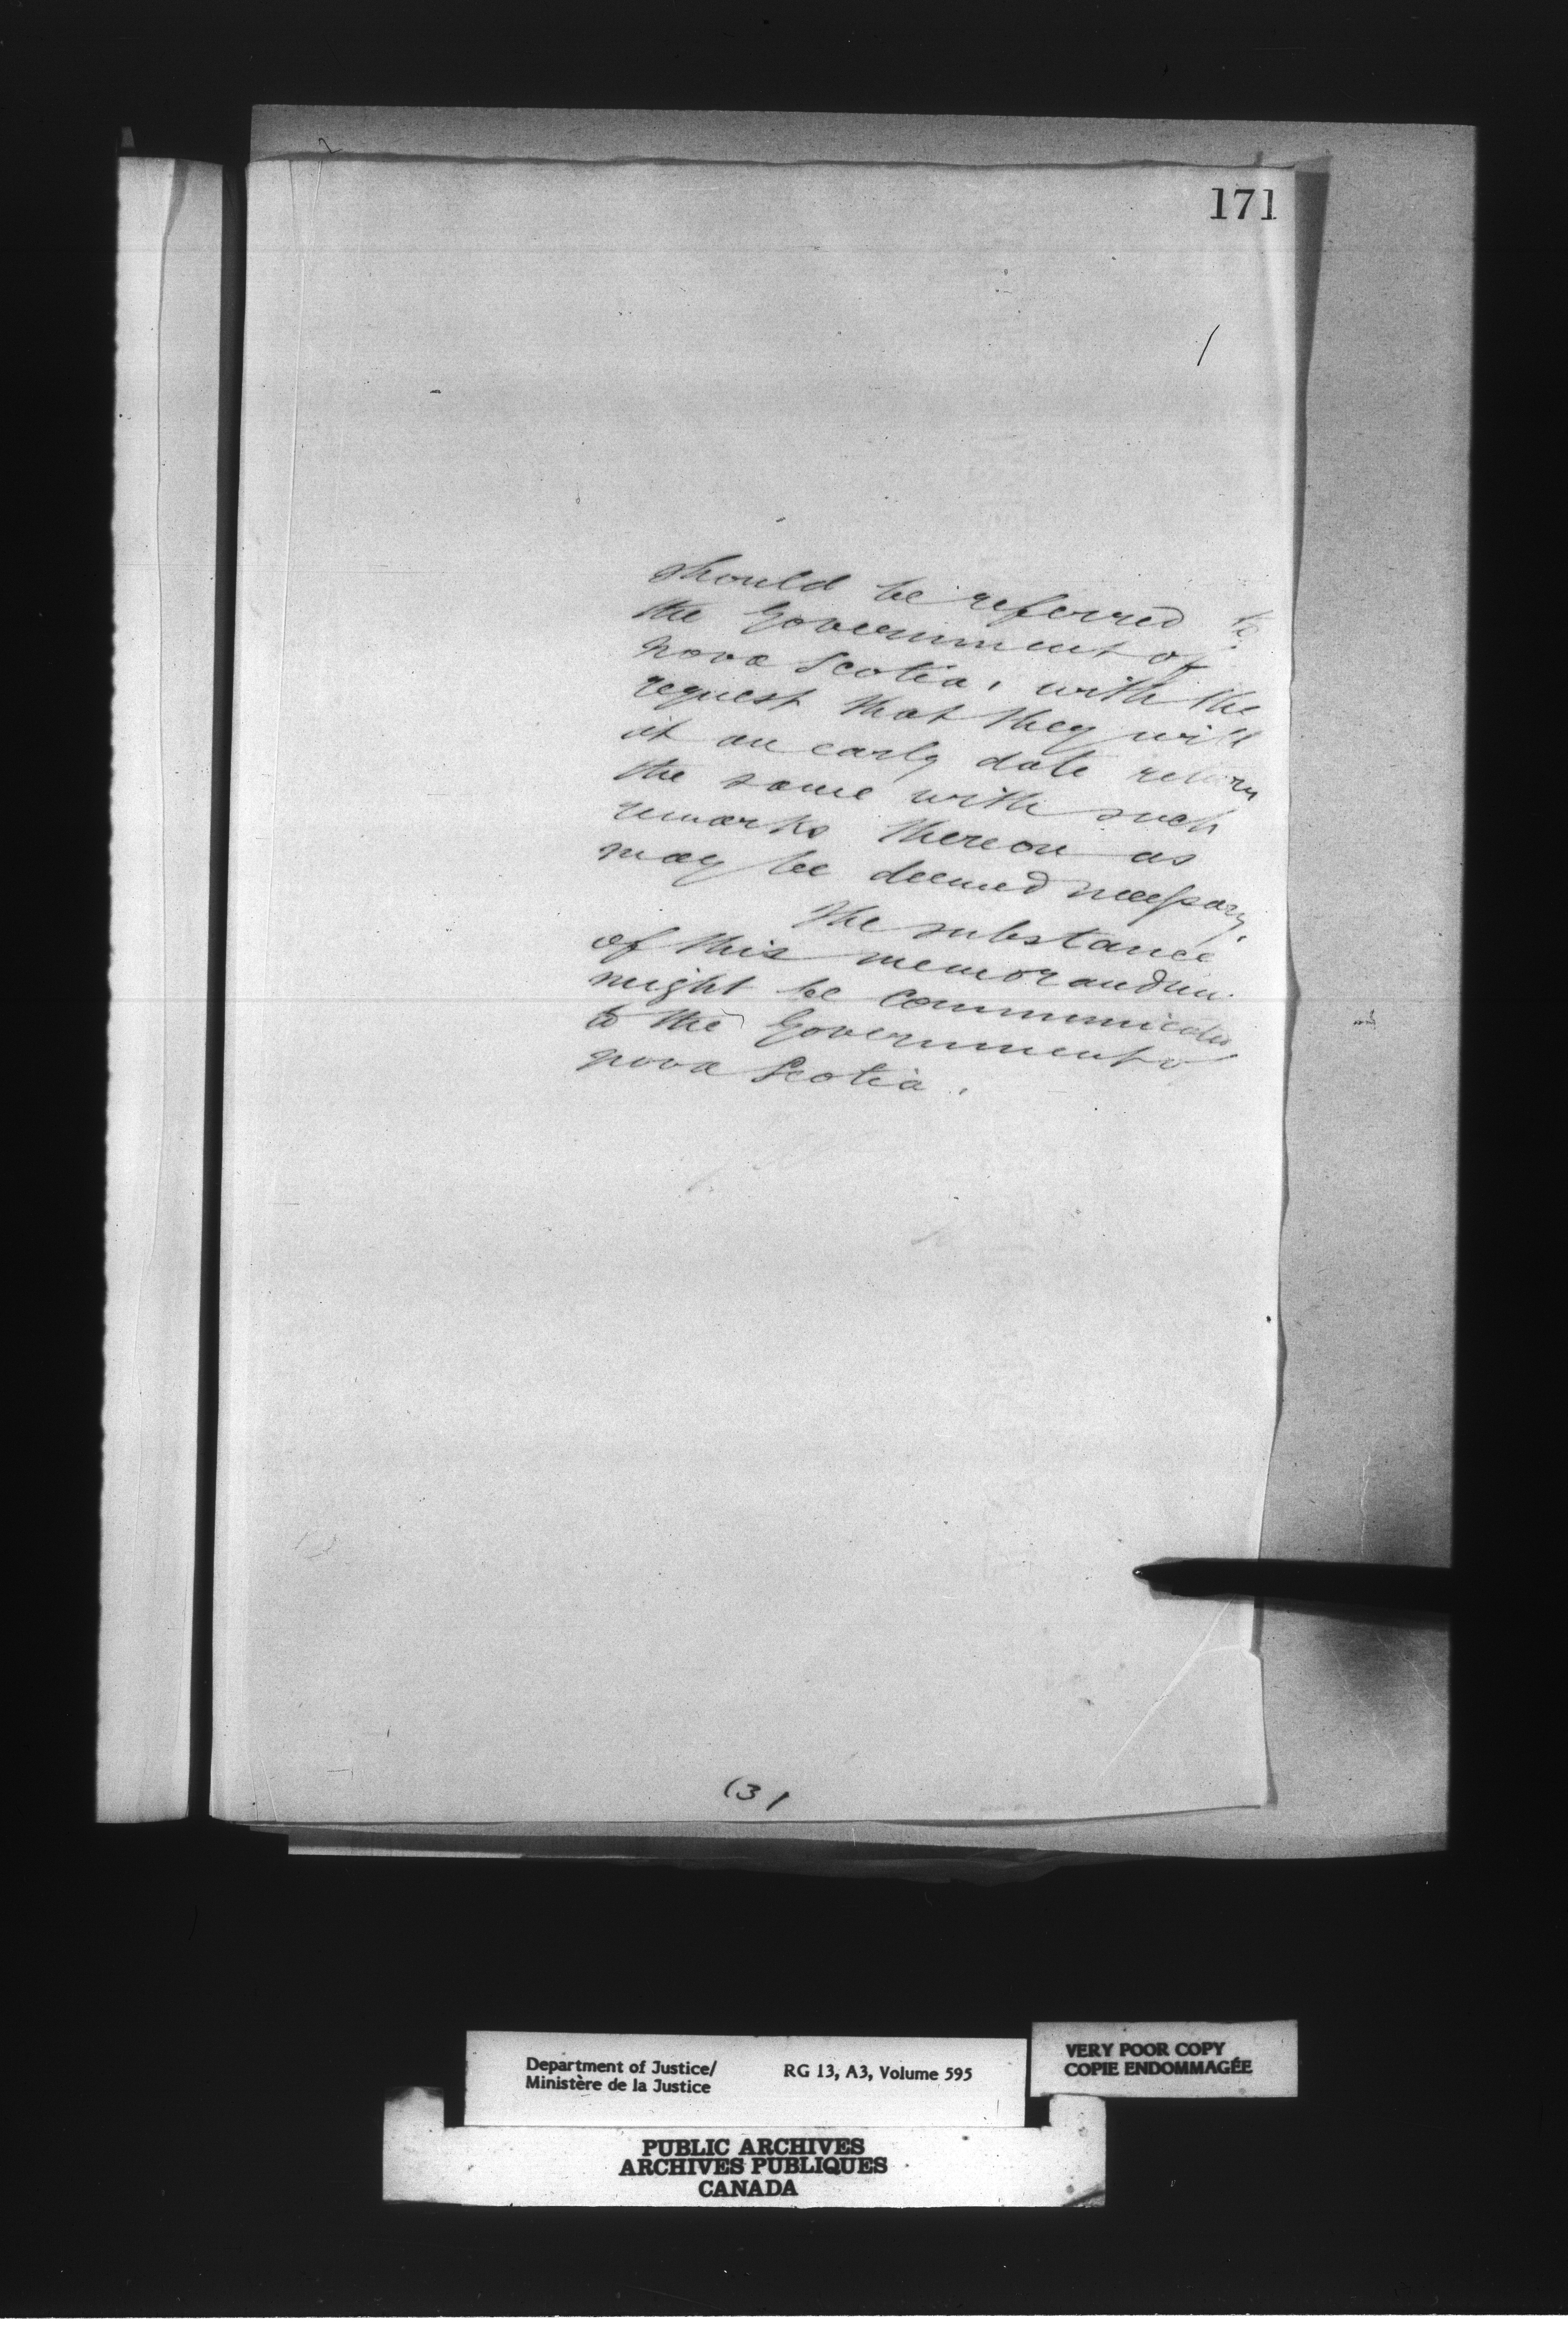 171
should be referred to
the Government of
Nova Scotia, with the
request that they will
at an early date return
the same with such
remarks thereon as
may be deemed necessary.
The substance
of this memorandum
might be communicated
to the Government of
Nova Scotia.
(3)
Department of Justice/
Ministère de la Justice
RG 13, A3, Volume 595
VERY POOR COPY
COPIE ENDOMMAGÉE
PUBLIC ARCHIVES
ARCHIVES PUBLIQUES
CANADA